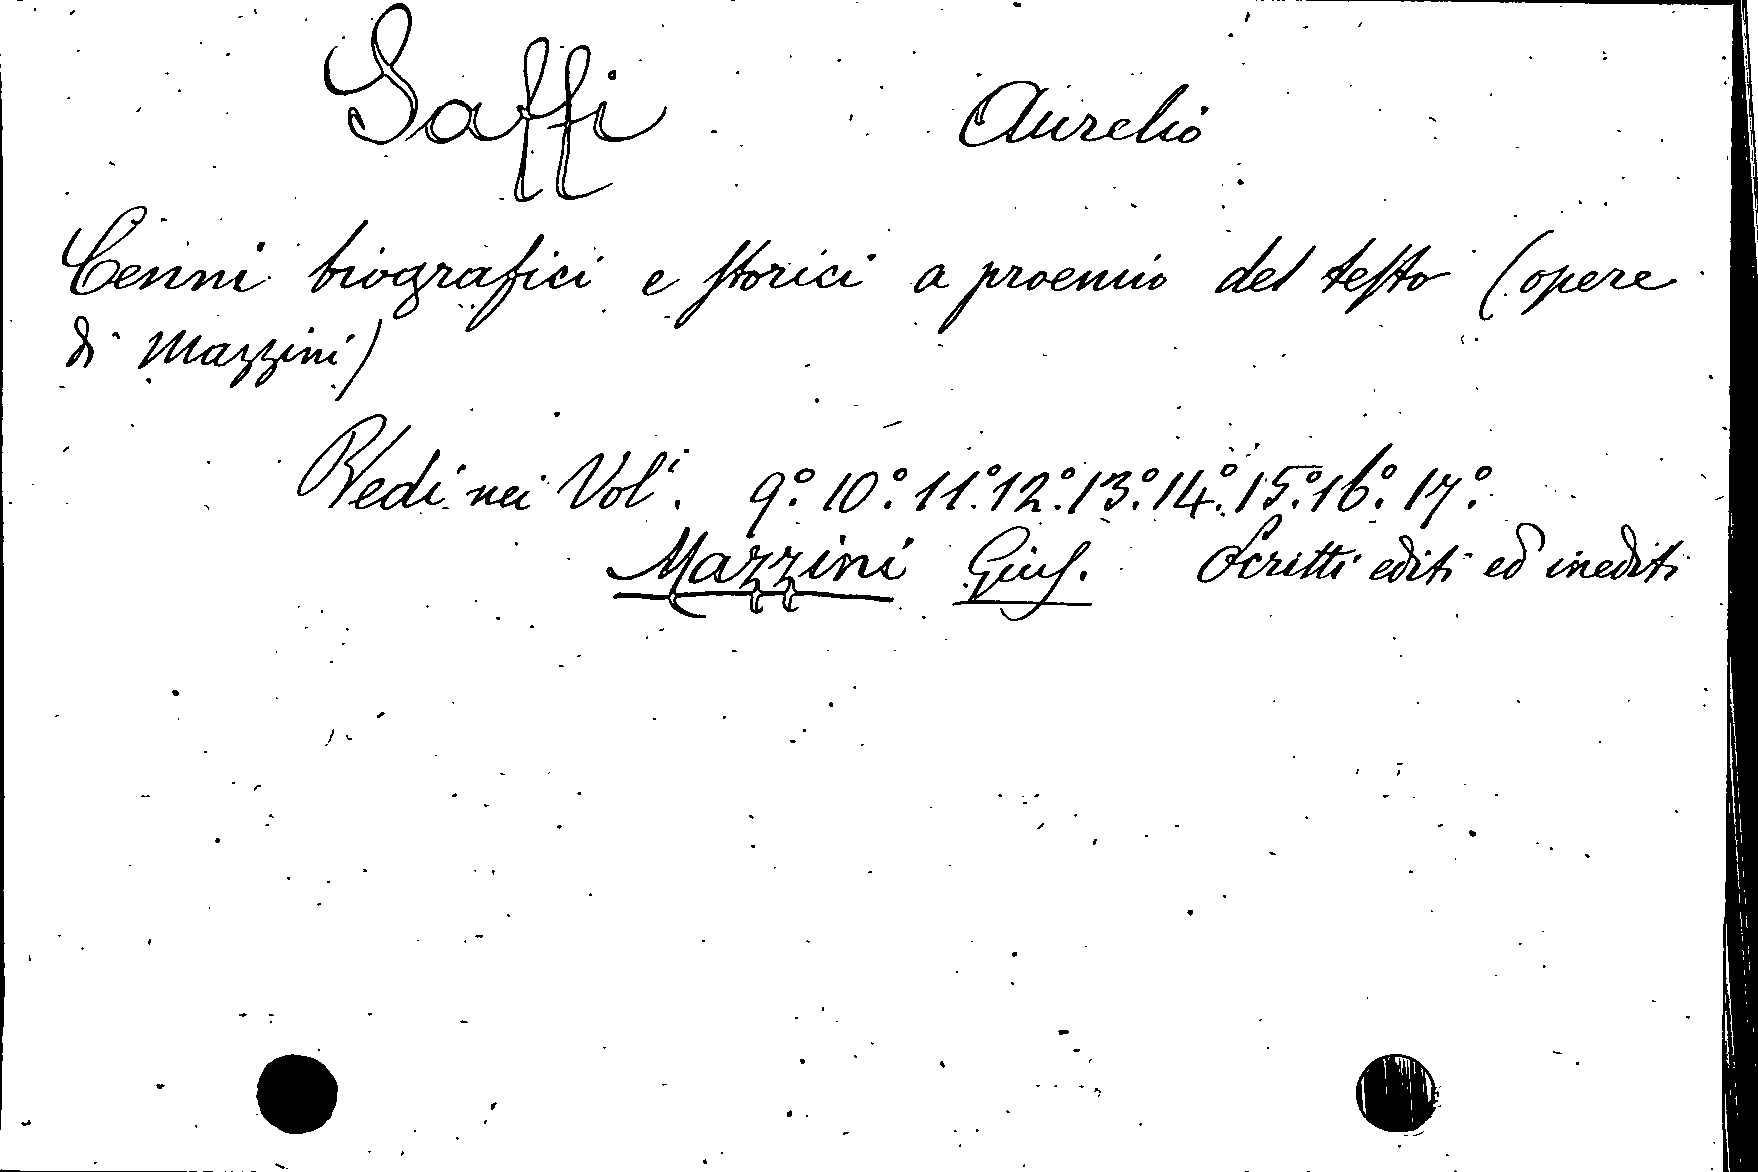 Saffi Aurelio
Cenni biografici e storici a proemio del testo (opere
di Mazzini)
Vedi nei Voli. 9.° 10.° 11.° 12.° 13.° 14.° 15.° 16.° 17.°
Mazzini Gius. Scritti editi ed inediti